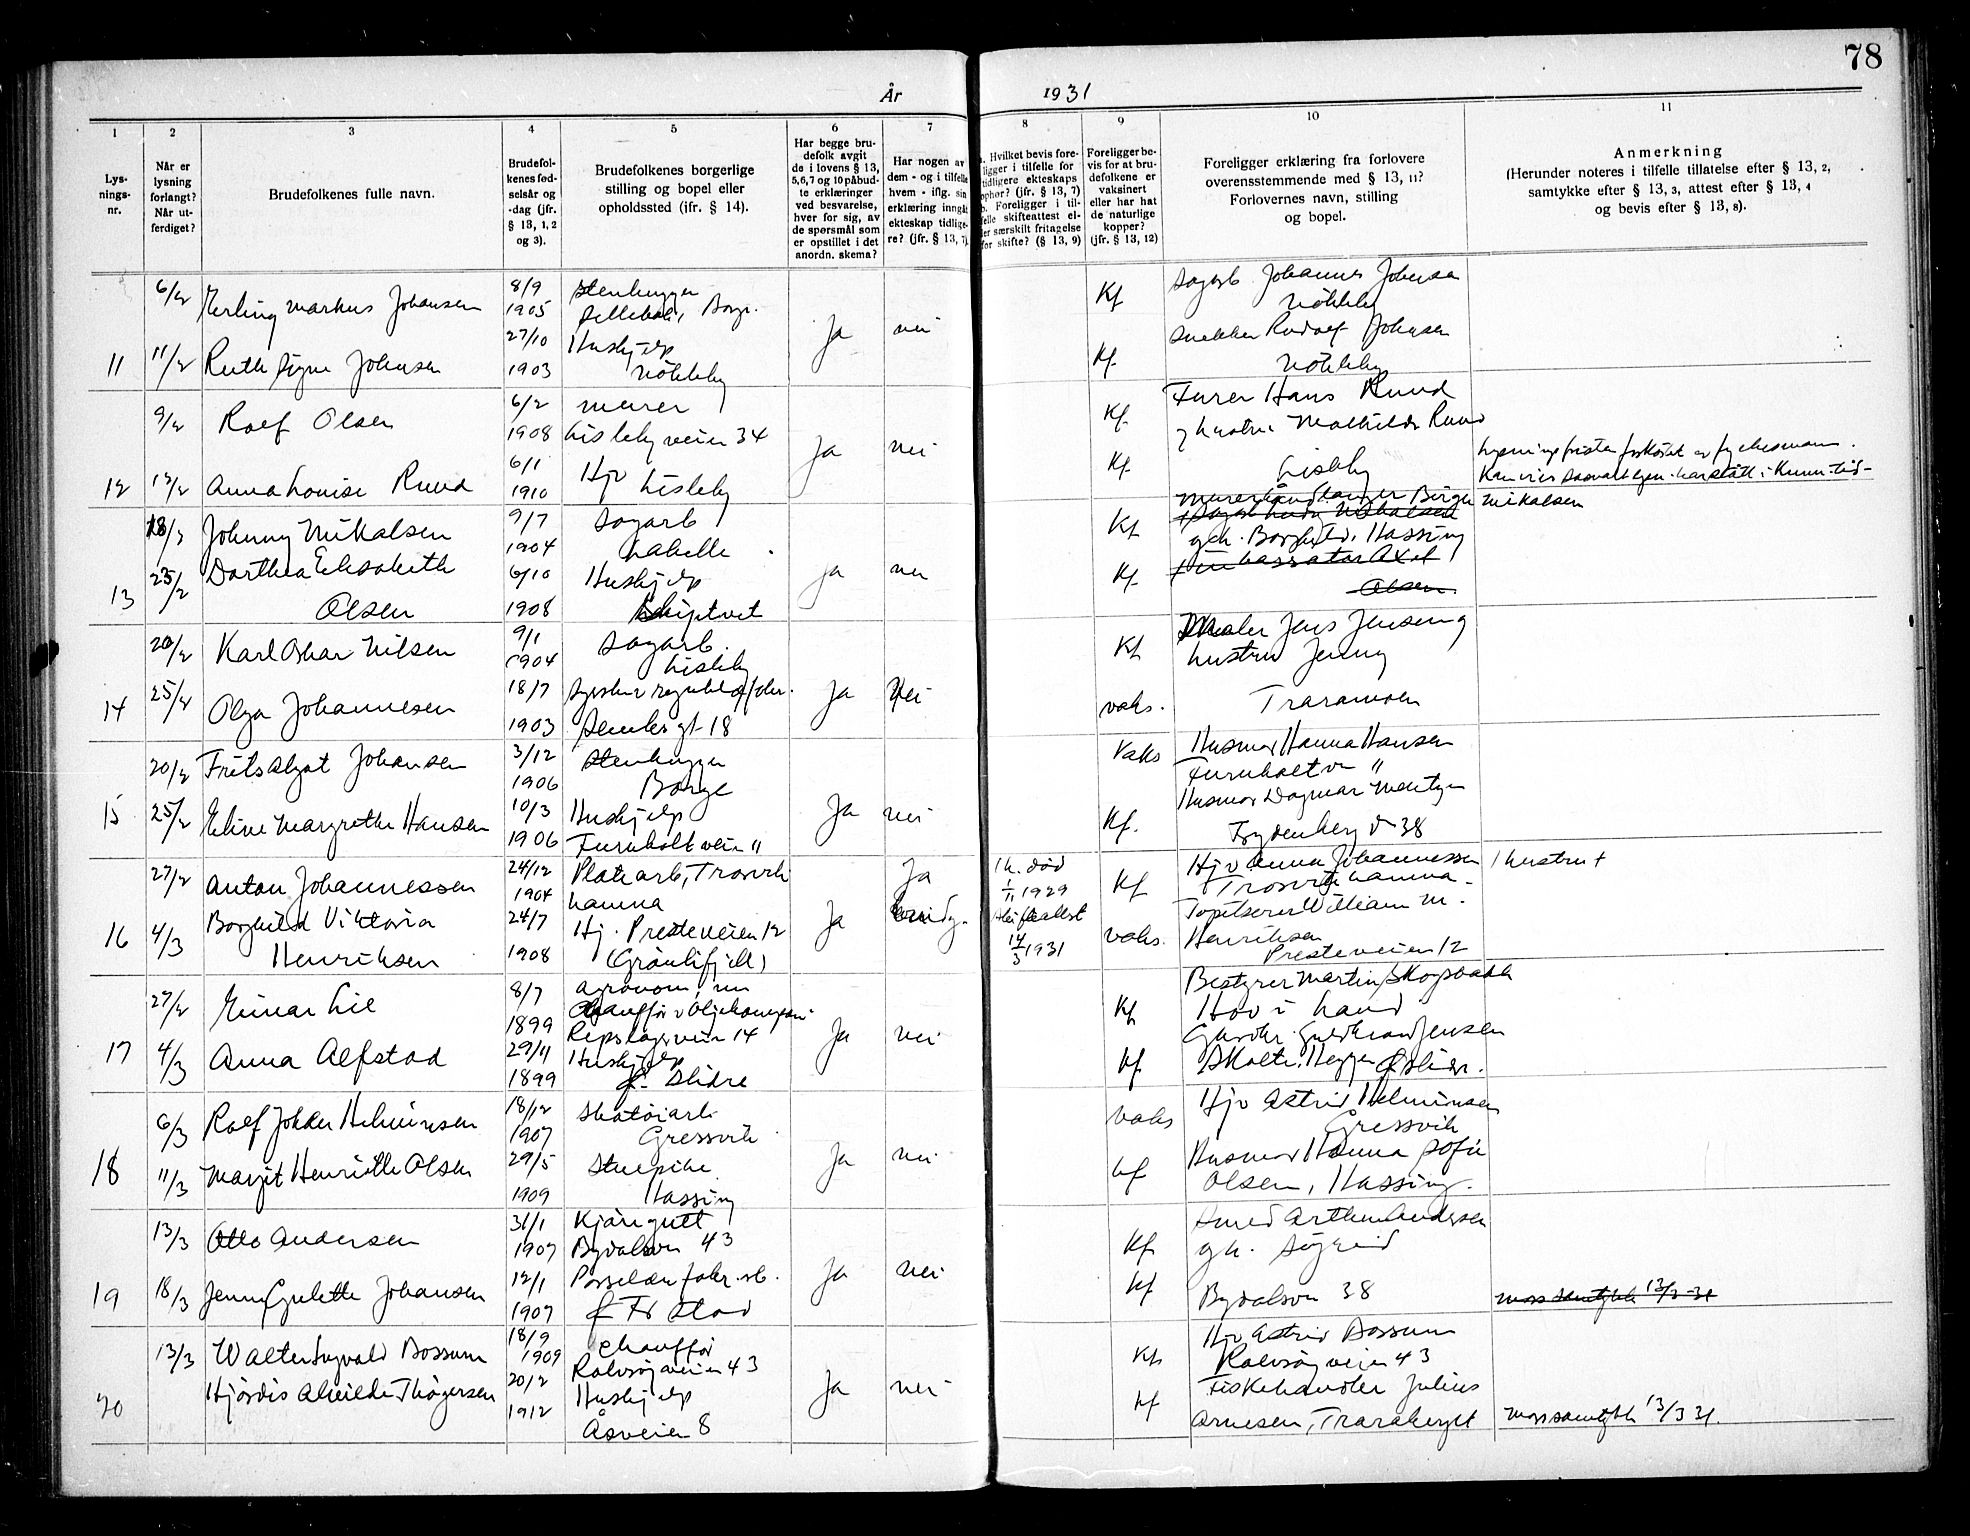 78
År 1931
1 2 3 4 5 6 7 8 9 10 11
Lys-
nings-
nr.
Når er
lysning
forlangt?
Når ut-
ferdiget?
Brudefolkenes fulle navn.
Brudefol-
kenes fød-
selsår og
-dag (jfr.
§ 13, 1, 2
og 3).
Brudefolkenes borgerlige
stilling og bopel eller
opholdssted (jfr. § 14).
Har begge bru-
defolk avgit
de i lovens § 13,
5,6,7 og 10 påbud-
te erklæringer
ved besvarelse,
hver for sig, av
de spørsmål som
er opstillet i det
anordn. skema?
Har nogen av
dem - og i tilfelle
hvem - iflg. sin
erklæring inngåt
ekteskap tidlige-
re? (jfr. § 13, 7)
a. Hvilket bevis fore-
ligger i tilfelle for
tidligere ekteskaps
ophør? (jfr. § 13, 7)
b. Foreligger i til-
felle skifteattest el-
ler særskilt fritagelse
for skifte? (§ 13, 9)
Foreligger be-
vis for at bru-
defolkene er
vaksinert
eller har hat
de naturlige
kopper?
(jfr. § 13, 12)
Foreligger erklæring fra forlovere
overensstemmende med § 13, 11?
Forlovernes navn, stilling
og bopel.
Anmerkning
(Herunder noteres i tilfelle tillatelse efter § 13, 2,
samtykke efter § 13, 3, attest efter § 13, 4
og bevis efter § 13, 8).
11
6/2
11/2
Erling Markus Johansen
Ruth Signe Johnsen
8/9
1905
27/10
1903
Stenhugger
Hushjelp
Nökleby
Ja
nei
Kf
Kf.
Sagarb Johannes Johnsen
Nökleby
Snekker Rudolf Johnsen
Nökleby
12
9/2
Rolf Olsen
Anna Lovise Ruud
6/2
1908
6/1
1910
murer
Lislebyveien 34
Hjv
Lisleby
Ja
nei
Kf.
Kf.
Furer Hans Ruud
Mathilde Ruud
Lisleby
13
18/2
23/2
Johnny Mikalsen
Dorthea Elisabeth
Olsen
9/7
1904
6/10
1908
Sagarb
Labelle
Hushjelp
Skiptvet
ja
nei
Kf
Kf.
Birger Mikalsen
gdr. Borghild, Hassing
Axel
Olsen
14
20/2
25/2
Karl Oskar Nilsen
Olga Johannesen
9/1
1904
18/7
1903
Sagarb.
Lisleby
gt 18
Ja
Nei
Kf
vaks.
Maler Jens Jensen og
hustru Jenny
Traramoen
15
20/2
25/2
Frits Johansen
Eline Margrethe Hansen
3/12
1906
10/3
1906
Stenhugger
Borge
Hushjelp
Furuholtveien 11
Ja
nei
Vaks
Kf.
Husmor Hanna Hansen
Furuholtvn 11
Husmor Dagmar
Frydenberg v 38
16
27/2
4/3
Anton Johannessen
Borghild Viktoria
Henriksen
24/12
1904
24/7
1908
Platearb, Trosvik
Hj. Presteveien 12
Ja
Ja
1 h. död
1/11 1929
Skifteattest
14/3 1931
Kf
vaks.
Hjv Anna Johannessen
Trosvik
William M.
Henriksen
Presteveien 12
1 hustru +
17
27/2
4/3
Einar Lie
Anna Alfstad
8/7
1899
29/11
1899
agronom, nu
Repslagerveien 14
Hushjelp
f. Slidre
Ja
nei
Kf
Kf.
Bestyrer Martin Skogsbakk
Hov i Land
Jensen
18
6/3
11/3
Rolf Helmersen
Margit Henriette Olsen
18/12
1907
29/5
1909
Skotøiarb
Gressvik
Stuepike
Hassing
Ja
nei
Vaks
Kf
Hjv Astrid Helmersen
Gressvik
Husmor Hanna Sofie
Olsen, Hassing.
19
13/3
18/3
Otto Andersen
Jenny Gulette Johansen
31/1
1907
12/1
1907
Kjöregutt
Bydalsvn 43
Porselen fabr. arb.
f Fr stad
Ja
nei
Kf
Kf
Smed Arthur Andersen
gk. Sigrid
Bydalsvn 38
mors samtykke 13/3-31
20
13/3
Walter Sigvald Bossum
Hjördis Alvilde Thögersen
18/9
1909
20/2
1912
Chauffør
Rolvsöyveien 43
Hushjelp
Åsveien 8
Ja
nei
Kf
Kf
Hjv Astrid Bossum
Rolvsöyveien 43
Fiskehandler Julius
Arnesen, Traraberget
mors samtykke 13/3 31.